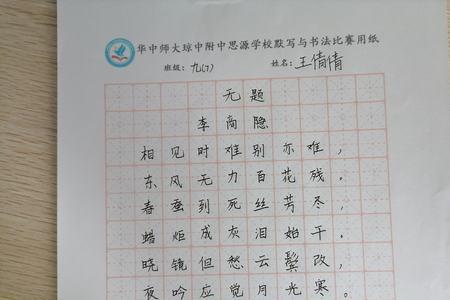 华中师大琼中附中思源学校默写与书法比赛用纸
班级：九(7) 姓名：王倩倩
无题
李商隐
相见时难别亦难，
东风无力百花残。
春蚕到死丝芳尽，
蜡炬成灰泪始干。
晓镜但愁云鬓改，
夜吟应觉月光寒。